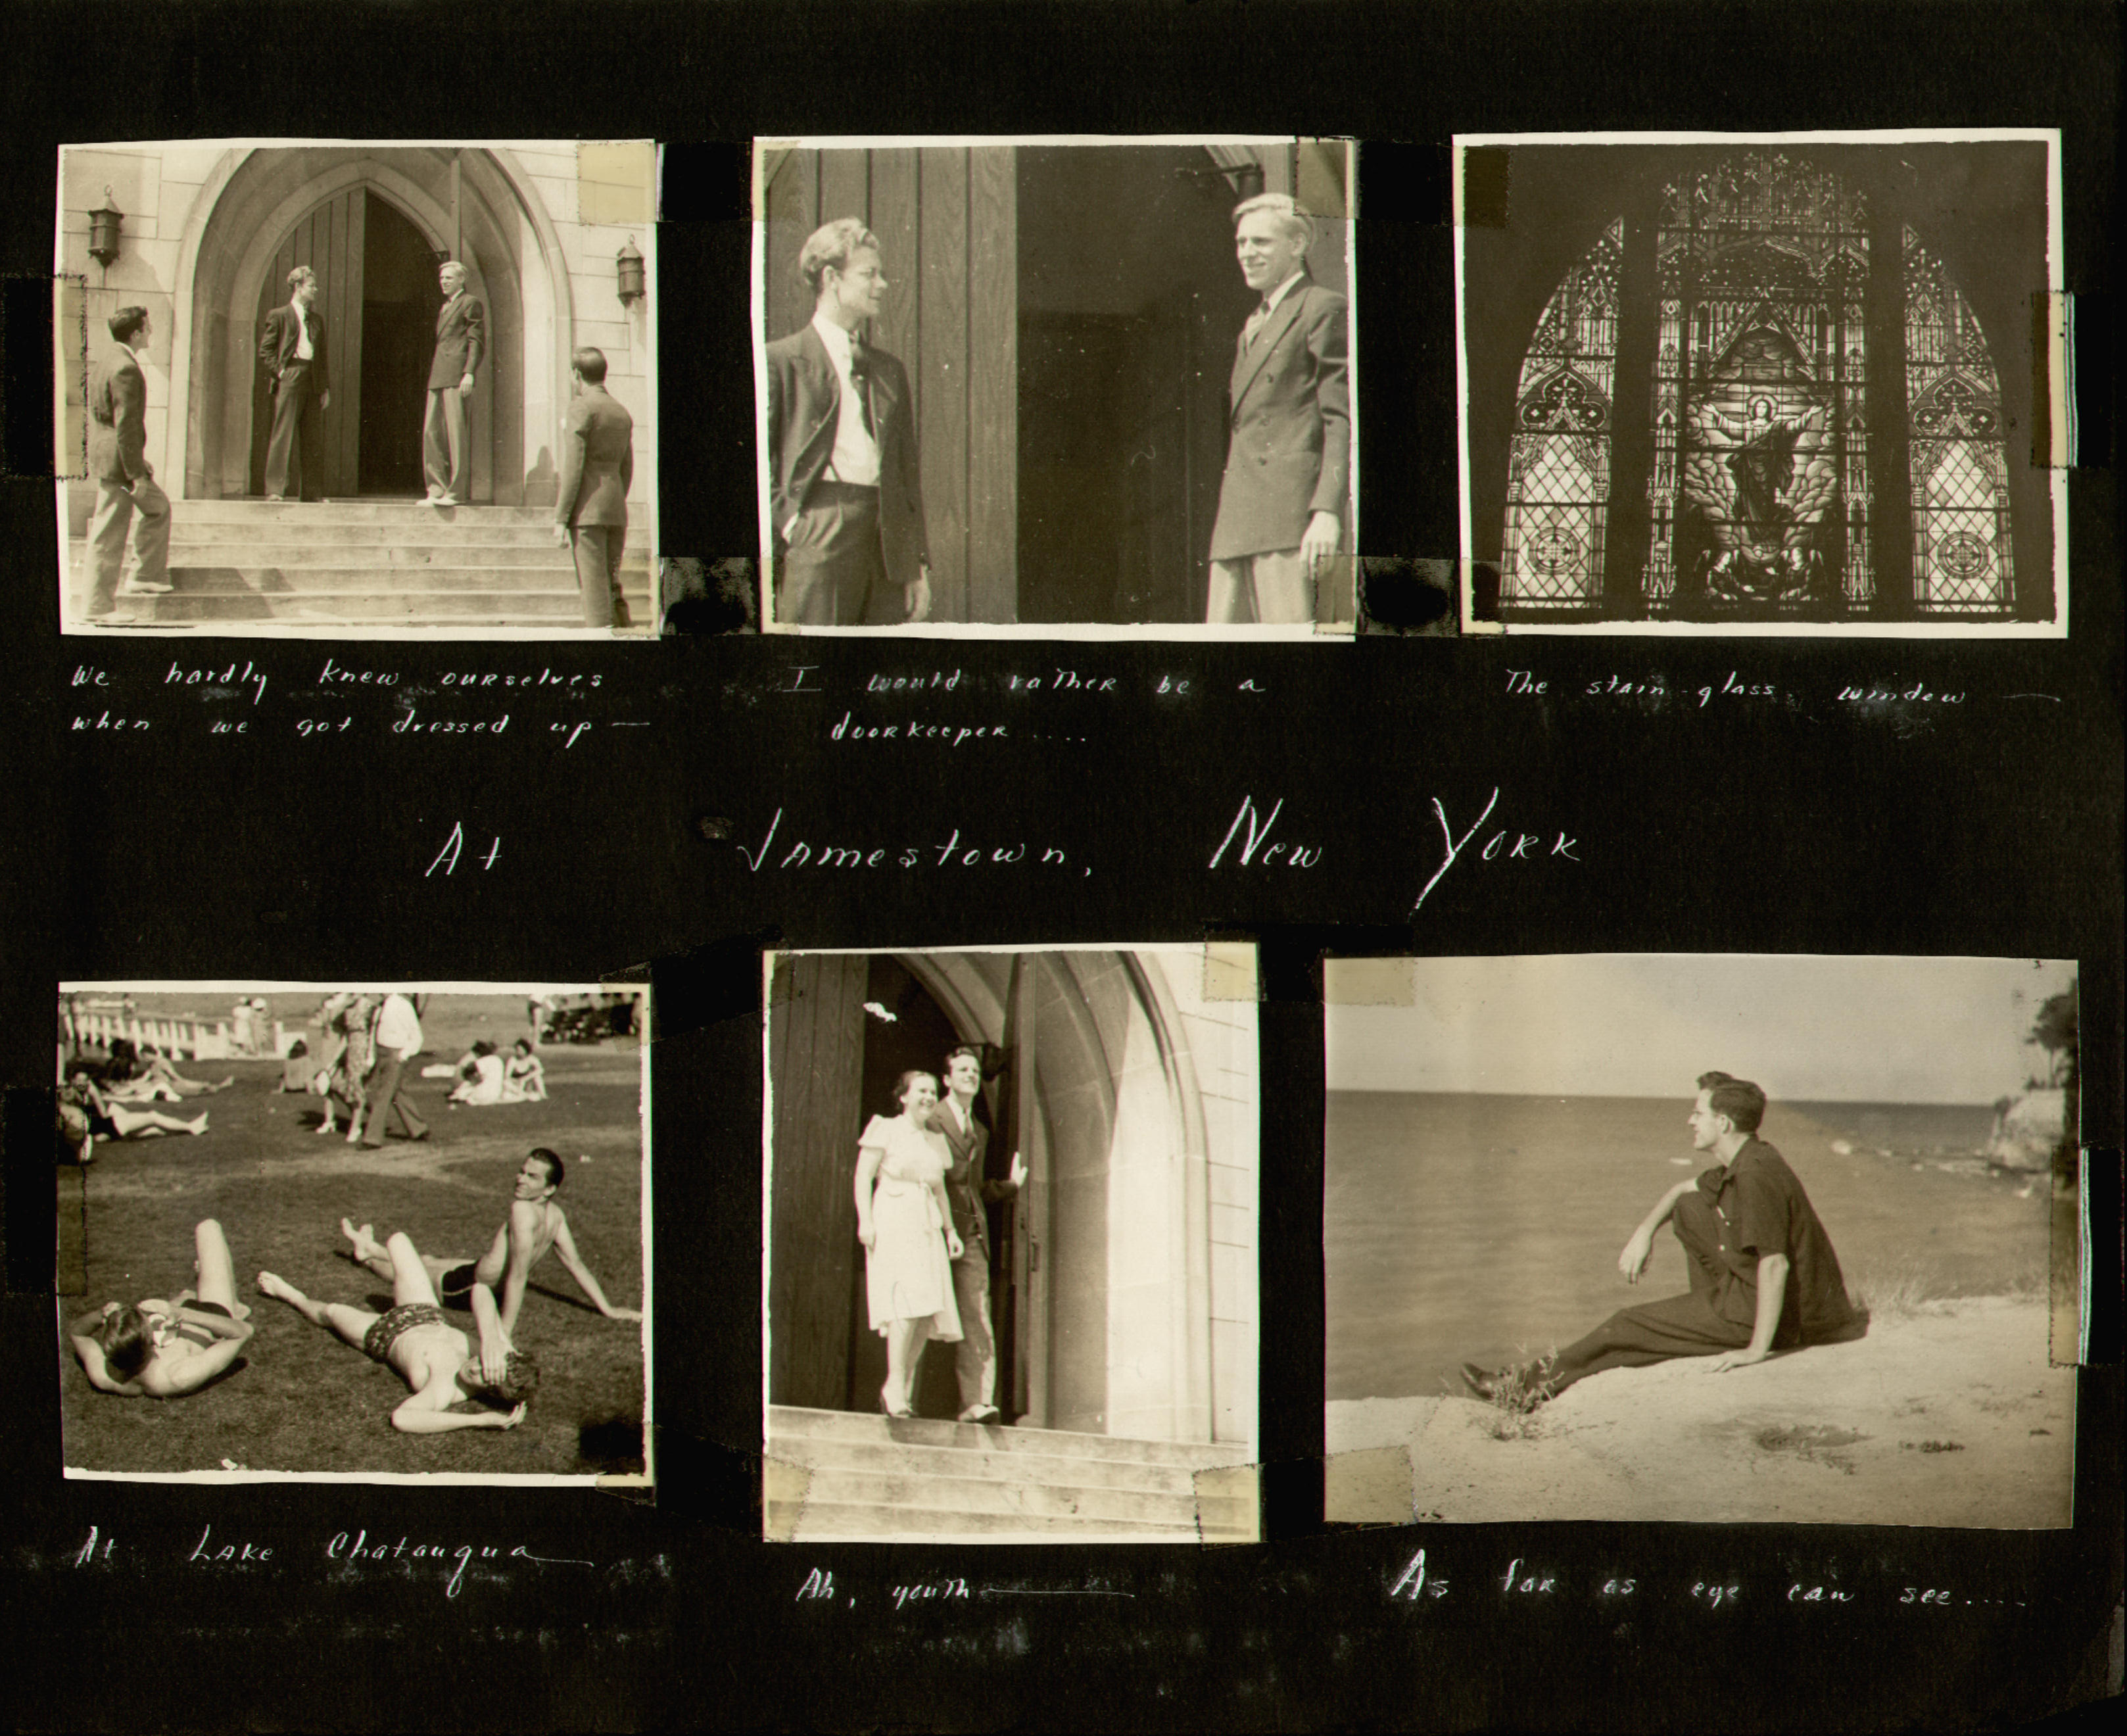 We hardly knew ourselves
when we got dressed up —
I would rather be a
doorkeeper ....
The stain glass window —
At Jamestown, New York
At Lake Chatauqua
Ah, youth —
As far as eye can see....